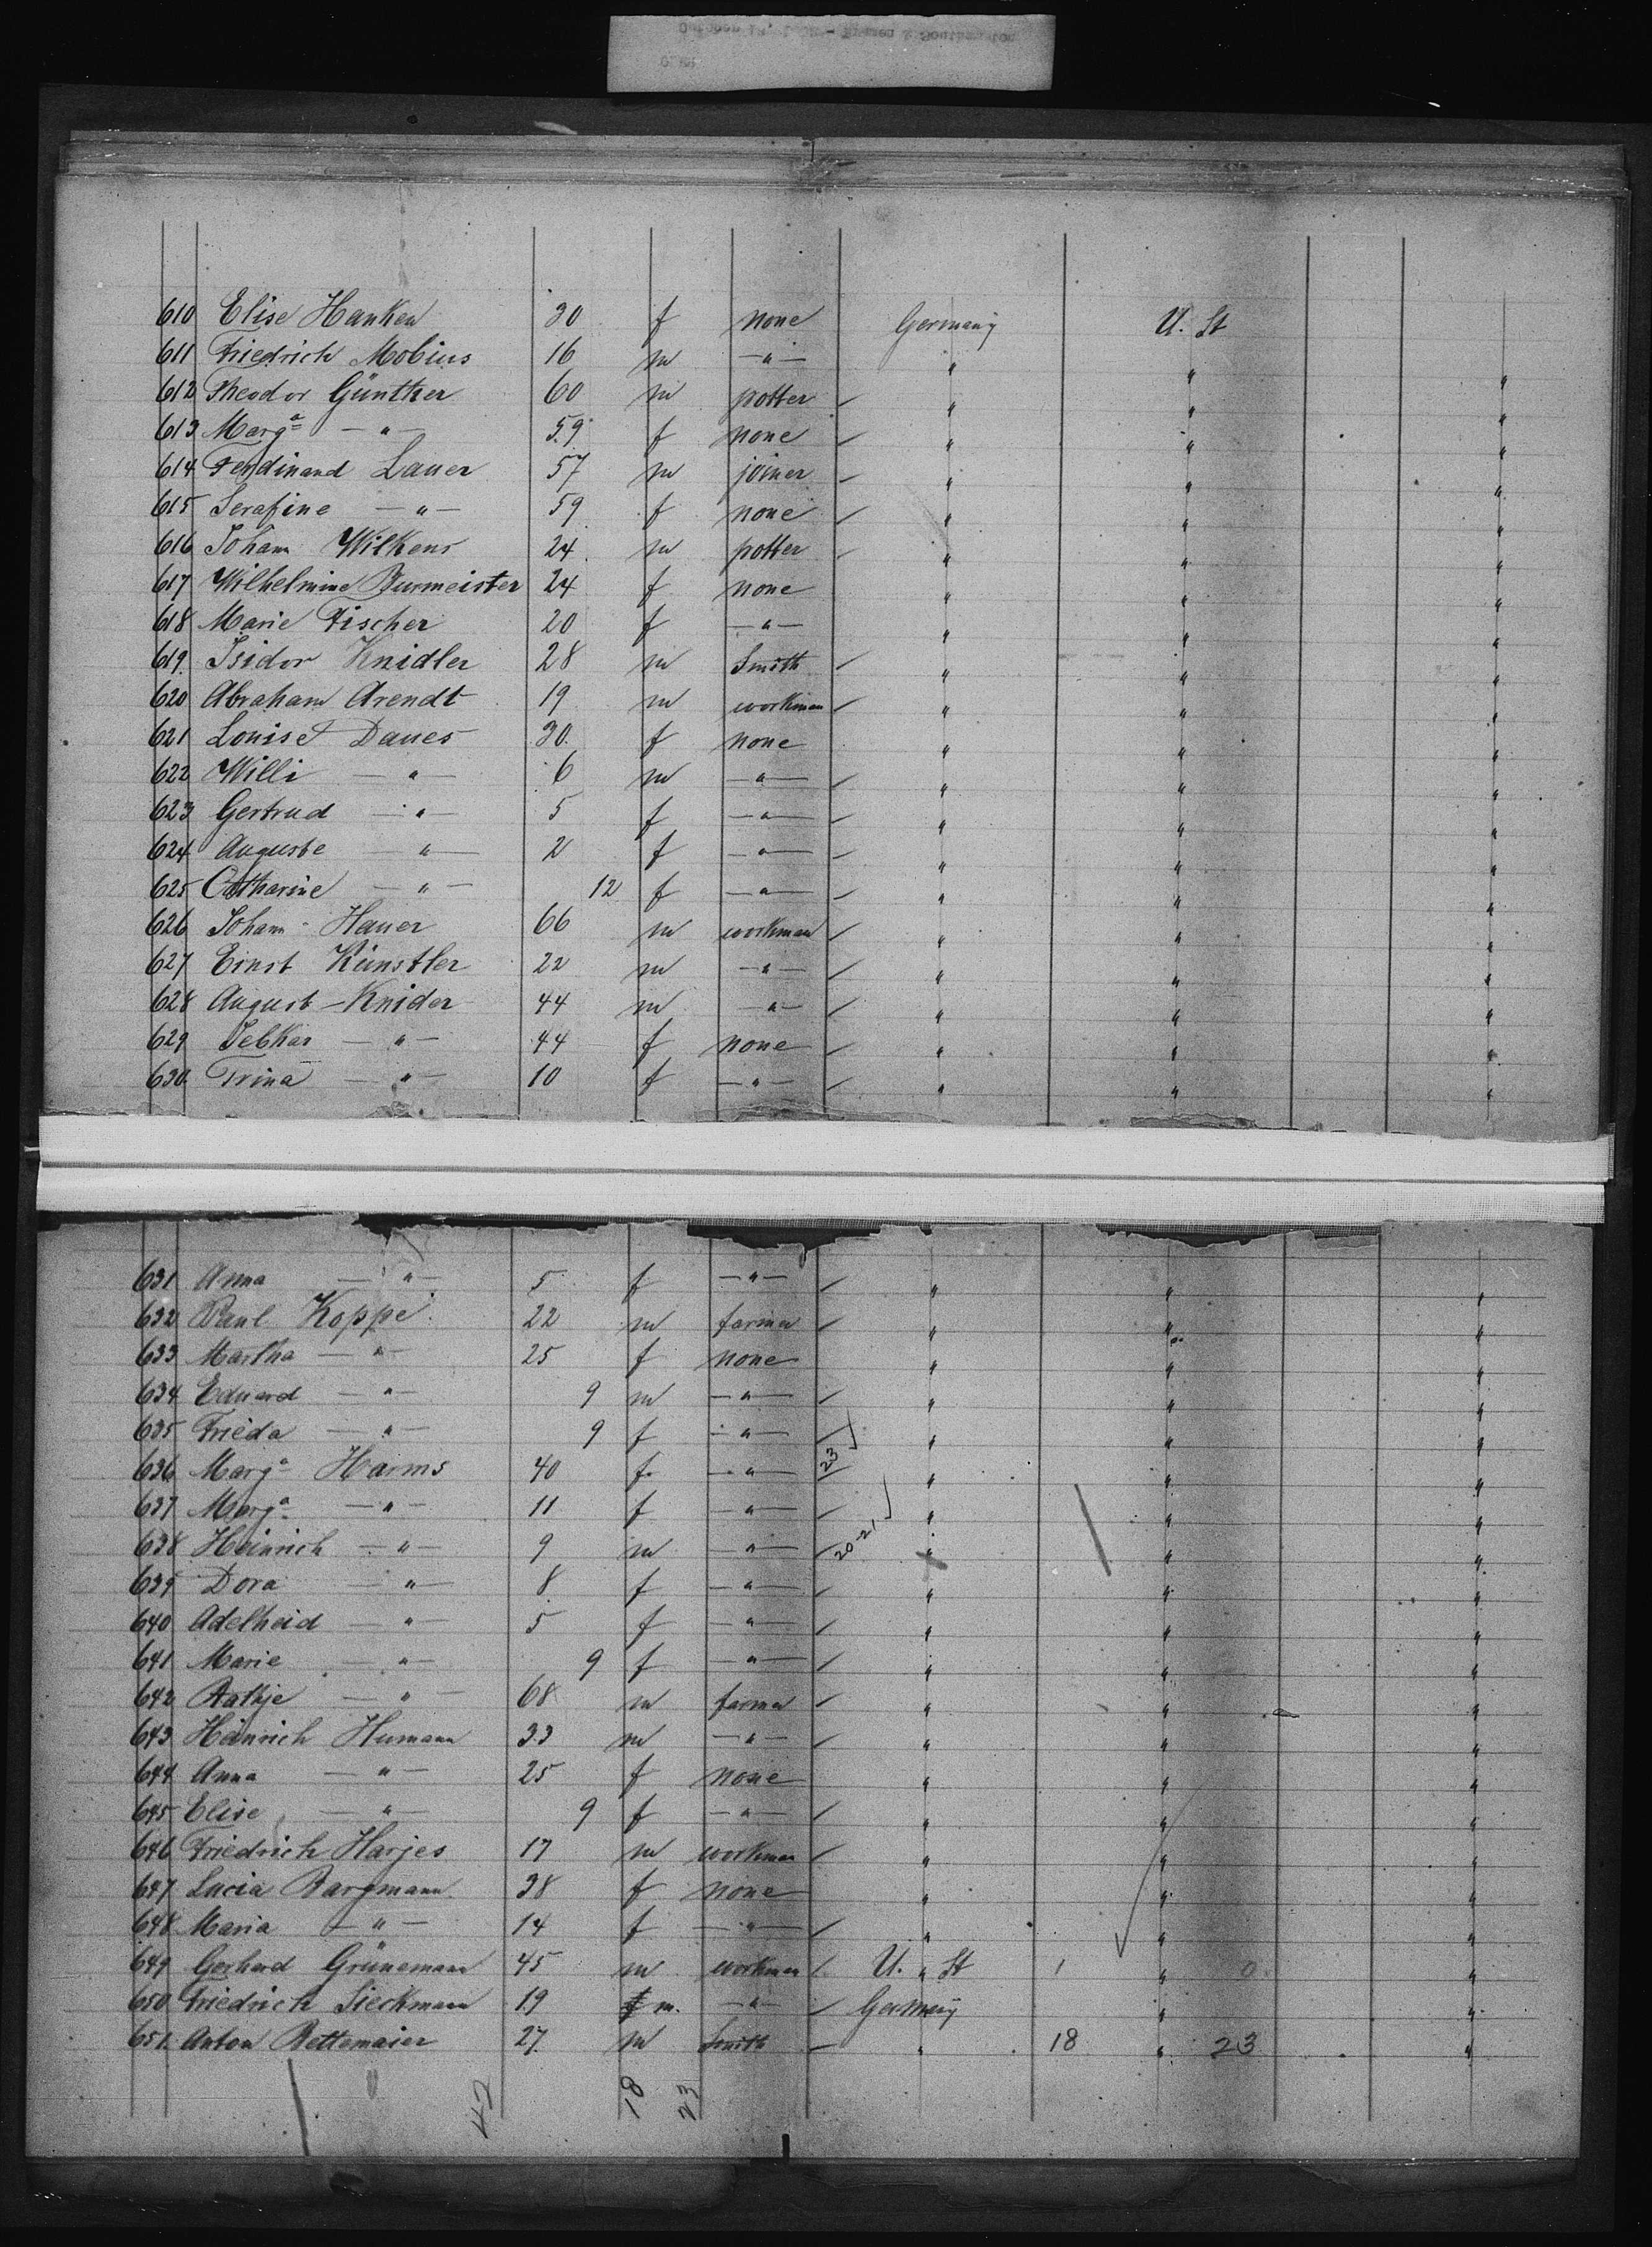 610 Elise Hanken 30 f none Germany U. St
611 Friedrich Mobius 16 m — " — " "
612 Theodor Günther 60 m potter " " "
613 Margª — " — 59 f none " " "
614 Ferdinand Lauer 57 m joiner " " "
615 Serafine — " — 59 f none " " "
616 Johann Wilkens 24 m potter " " "
617 Wilhelmine Burmeister 24 f none " " "
618 Marie Fischer 20 f — " — " " "
619 Isidor Knidler 28 m Smith " " "
620 Abraham Arendt 19 m workman " " "
621 Louise Daues 30 f none " " "
622 Willi — " — 6 m — " — " " "
623 Gertrud — " — 5 f — " — " " "
624 Auguste — " — 2 f — " — " " "
625 Catharine — " — 12 f — " — " " "
626 Johann Hauer 66 m workman " " "
627 Ernst Künstler 22 m — " — " " "
628 August Knider 44 m — " — " " "
629 — " — 44 f none " " "
630 Trina — " — 10 f — " — " " "
631 Anna — " — 5 f — " — " " "
632 Paul Koppe 22 m farmer " " "
633 Martha — " — 25 f none " " "
634 Eduard — " — 9 m — " — " " "
635 Frieda — " — 9 f — " — " " "
636 Margª Harms 40 f — " — 23 " " "
637 Margª — " — 11 f — " — " " "
638 Heinrich — " — 9 m — " — 20-21 " " "
639 Dora — " — 8 f — " — " " "
640 Adelheid — " — 5 f — " — " " "
641 Marie — " — 9 f — " — " " "
642 Rathje — " — 68 m farmer " " "
643 Heinrich Humann 33 m — " — " " "
644 Anna — " — 25 f none " " "
645 Elise — " — 9 f — " — " " "
646 Friedrich Harjes 17 m workman " " "
647 Lucia Bargmann 38 f none " " "
648 Maria — " — 14 f — " — " " "
649 Gerhard Grünemann 45 m workman U. St 1 " 0 "
650 Friedrich Sieckmann 19 m. — " — Germany " "
651 Anton Bettemaier 27 m Smith " 18 " 23 "
42 18 23